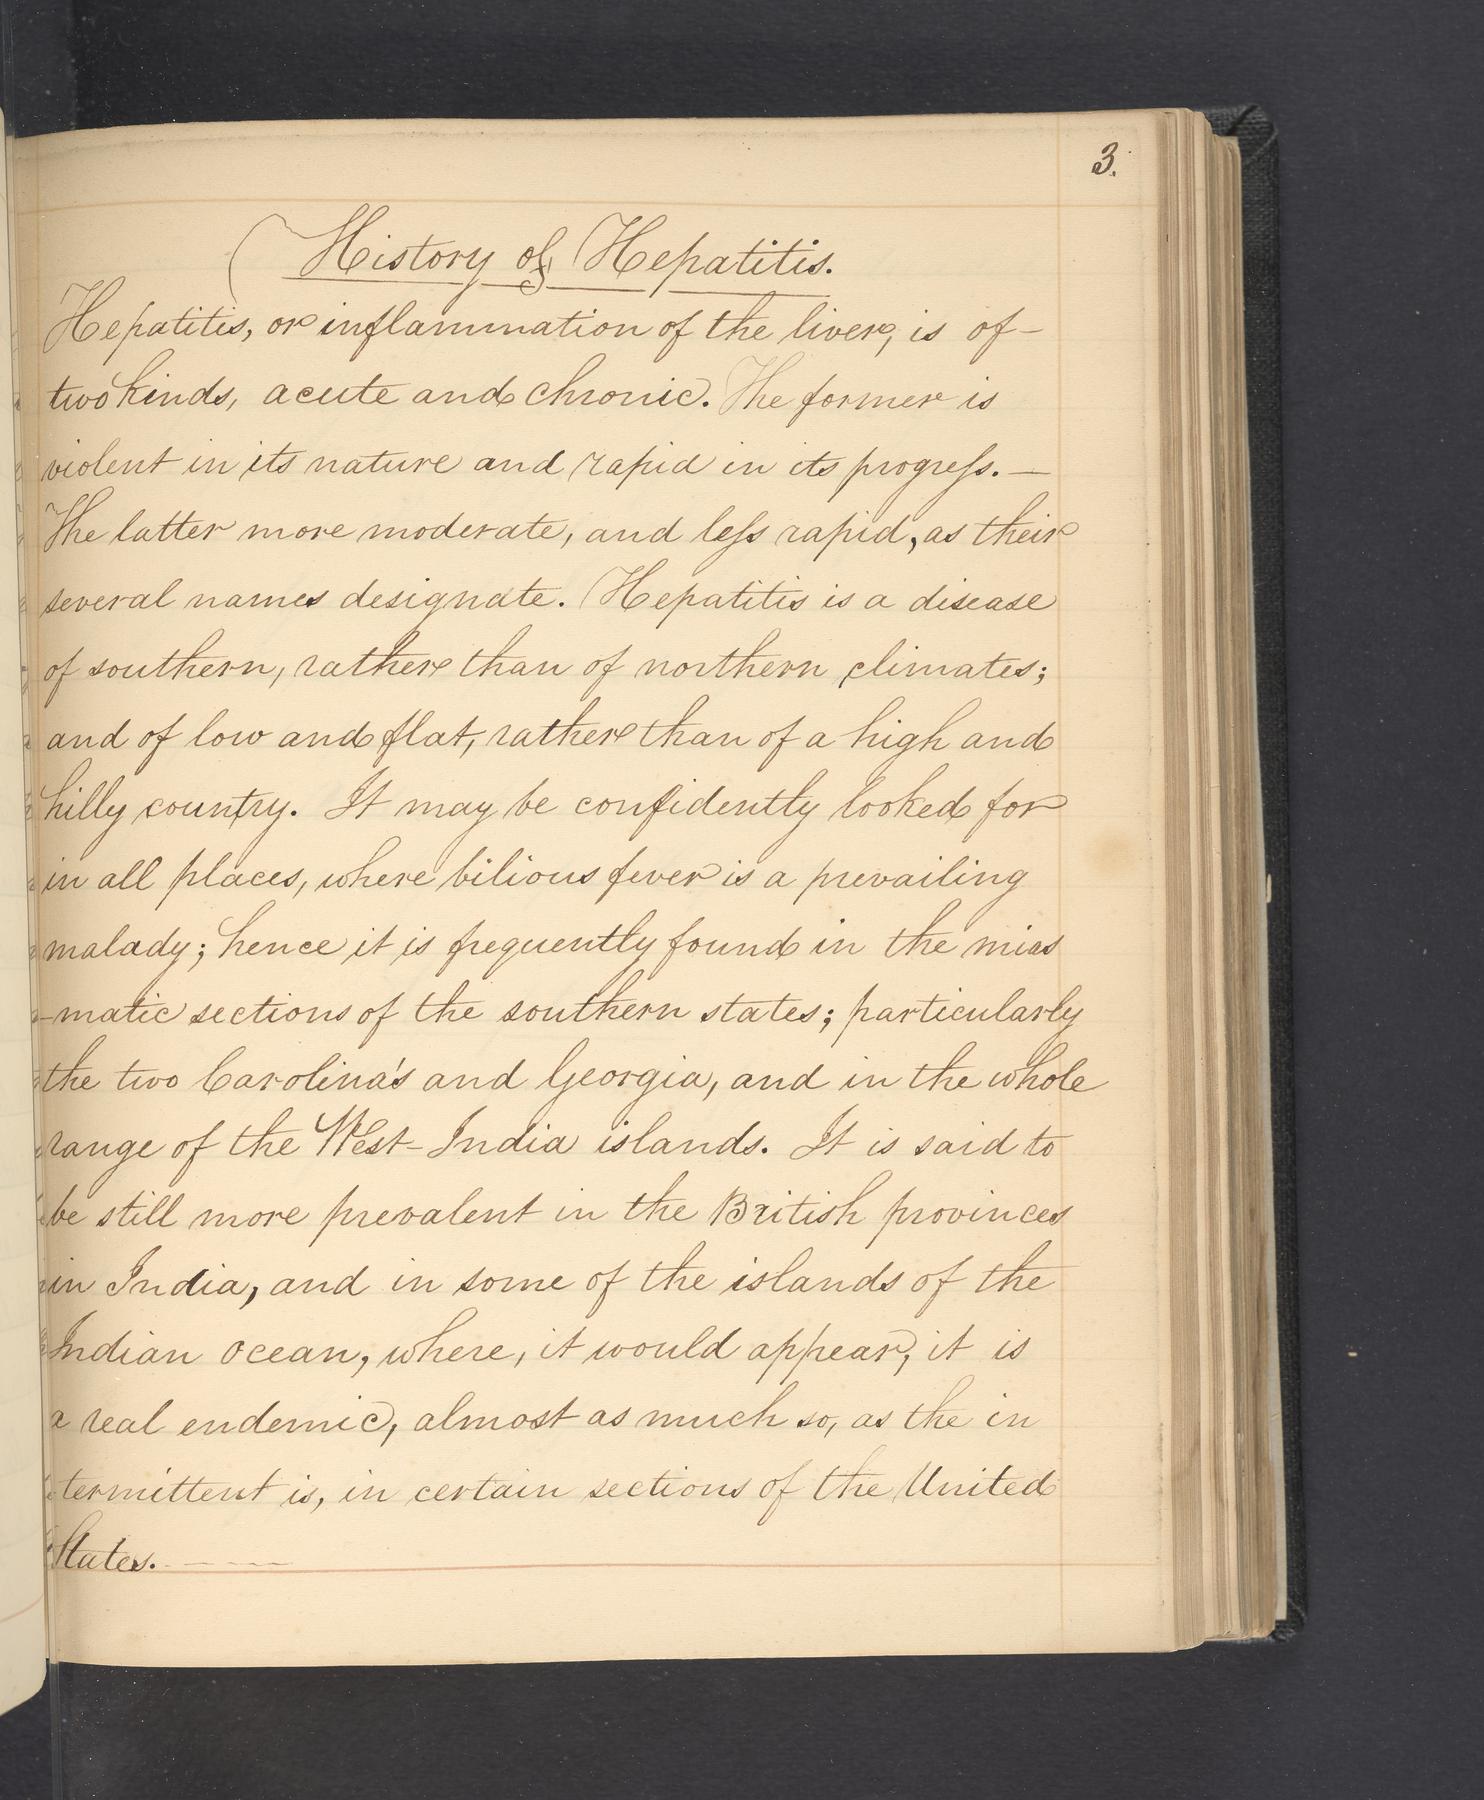 3.
History of Hepatitis.
Hepatitis, or inflammation of the liver, is of-
two kinds, acute and chronic. The former is
violent in its nature and rapid in its progreſs. —
The latter more moderate, and leſs rapid, as their
several names designate. Hepatitis is a disease
of southern, rather than of northern climates;
and of low and flat, rather than of a high and
hilly country. It may be confidently looked for
in all places, where bilious fever is a prevailing
malady; hence it is frequently found in the mias
-matic sections of the southern states; particularly
the two Carolina's and Georgia, and in the whole
range of the West-India islands. It is said to
be still more prevalent in the British provinces
in India, and in some of the islands of the
Indian Ocean, where, it would appear, it is
a real endemic, almost as much so, as the in
termittent is, in certain sections of the United
States. — — —